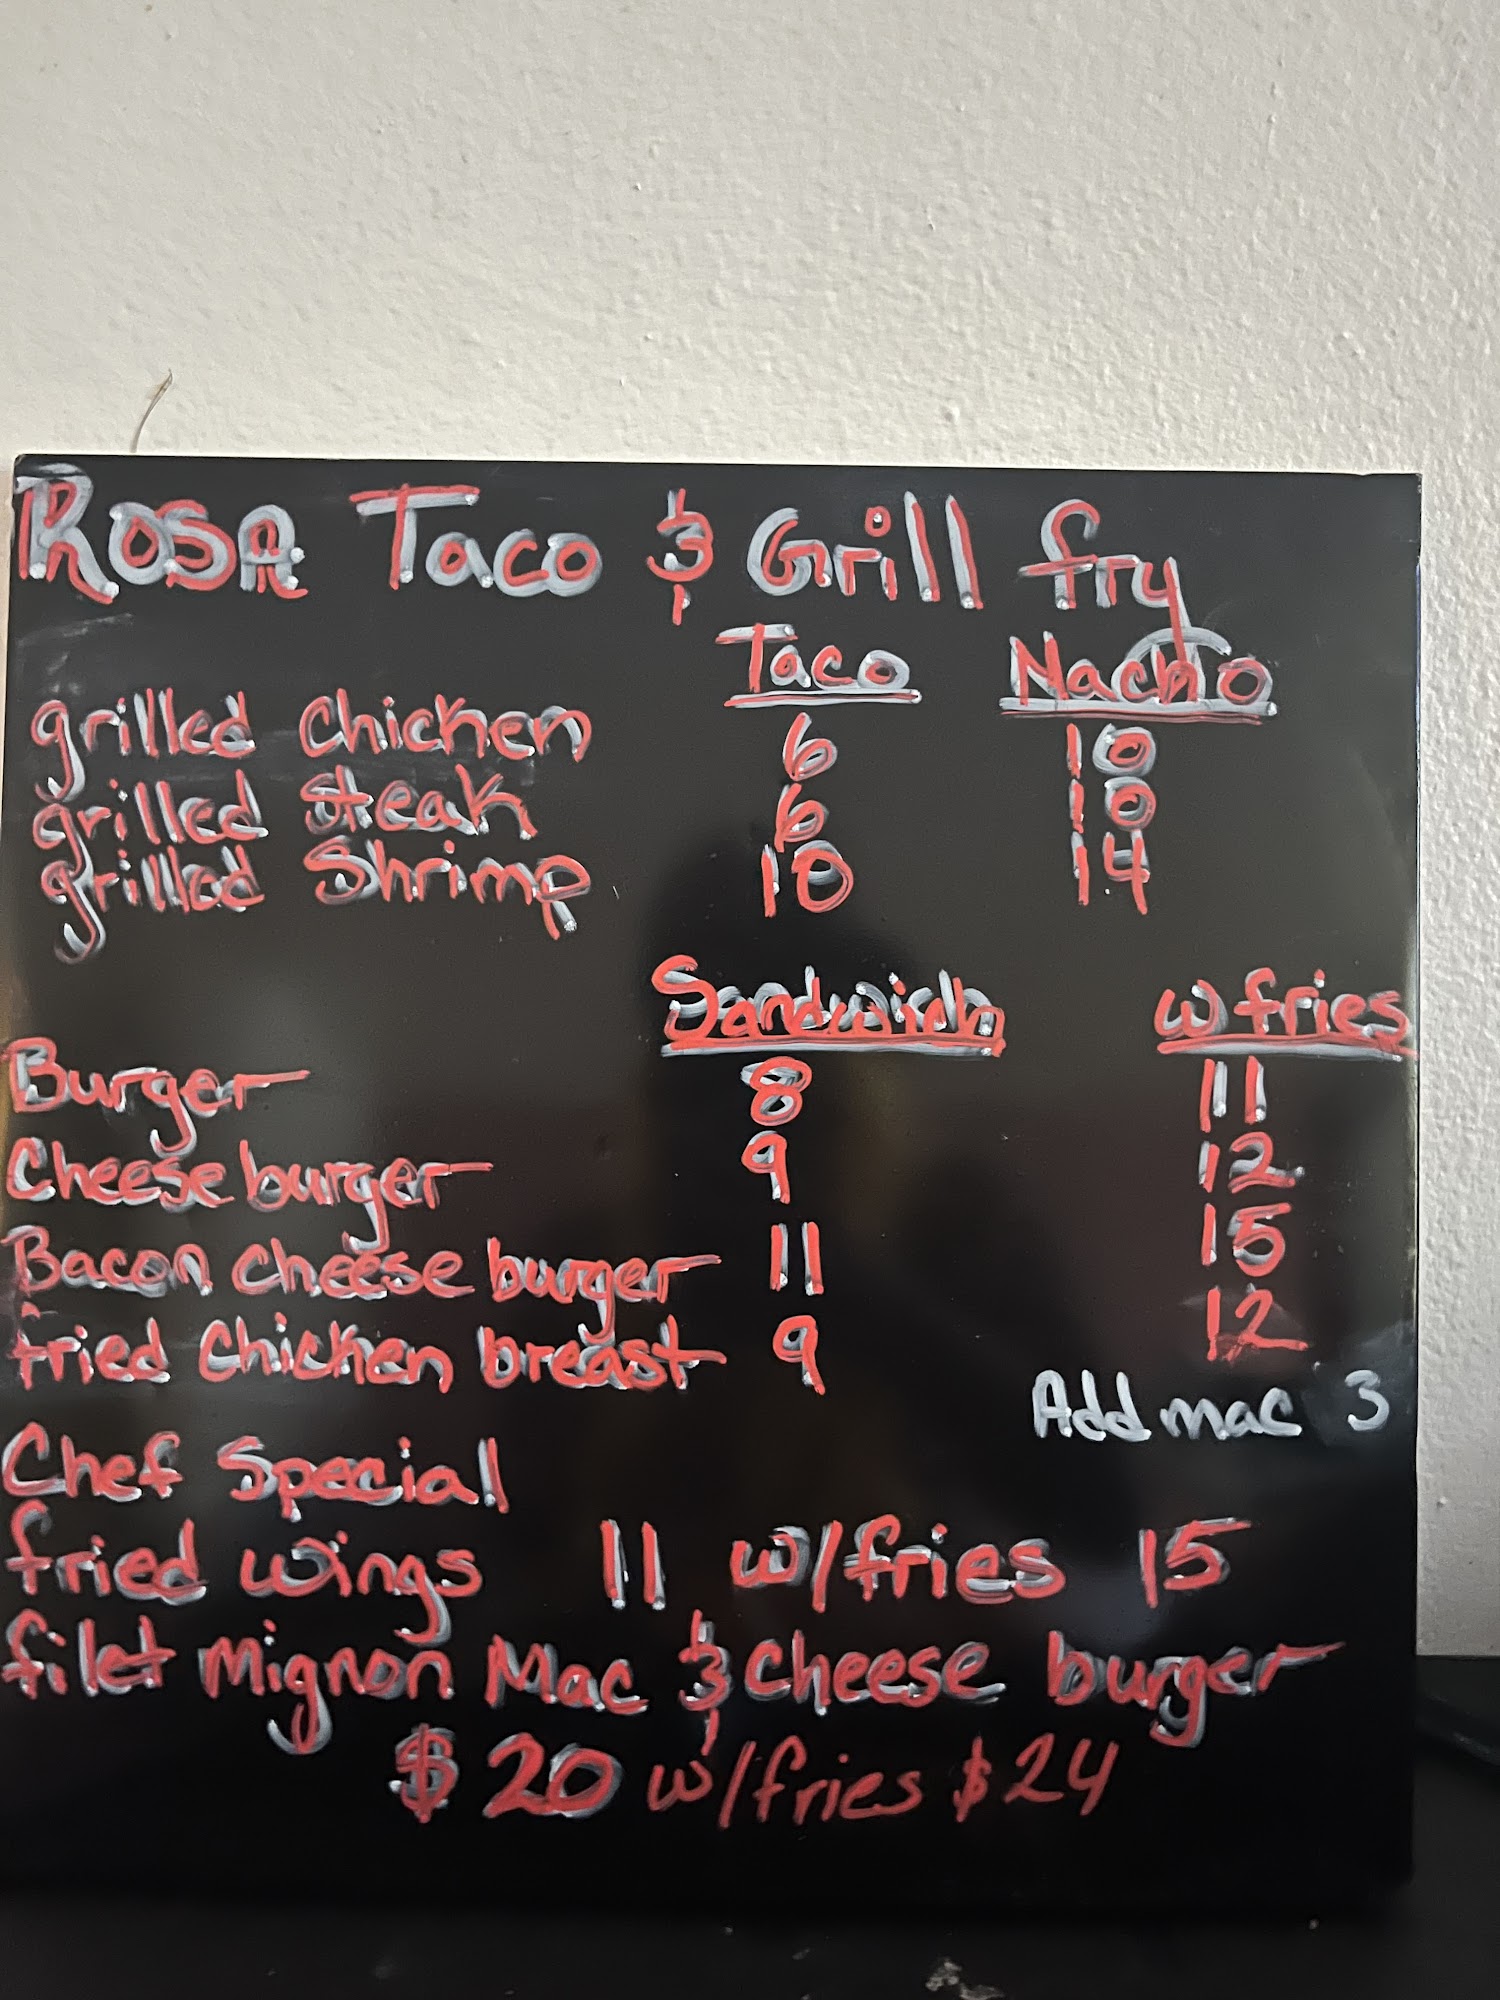 Rosa Taco & Grill fry
Taco Nacho
grilled chicken 6 10
grilled steak 6 10
grilled Shrimp 10 14
Sandwich w fries
Burger 8 11
Cheese burger 9 12
Bacon cheese burger 11 15
fried chicken breast 9 12
Add mac 3
Chef Special
fried wings 11 w/fries 15
filet mignon Mac & cheese burger
$20 w/fries $24